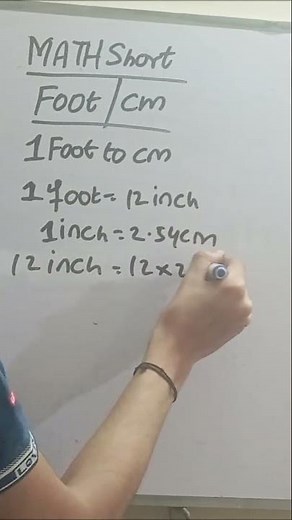 MATH Short
Foot/cm
1 Foot to cm
1 foot = 12 inch
1 inch = 2.54cm
12 inch = 12 × 2